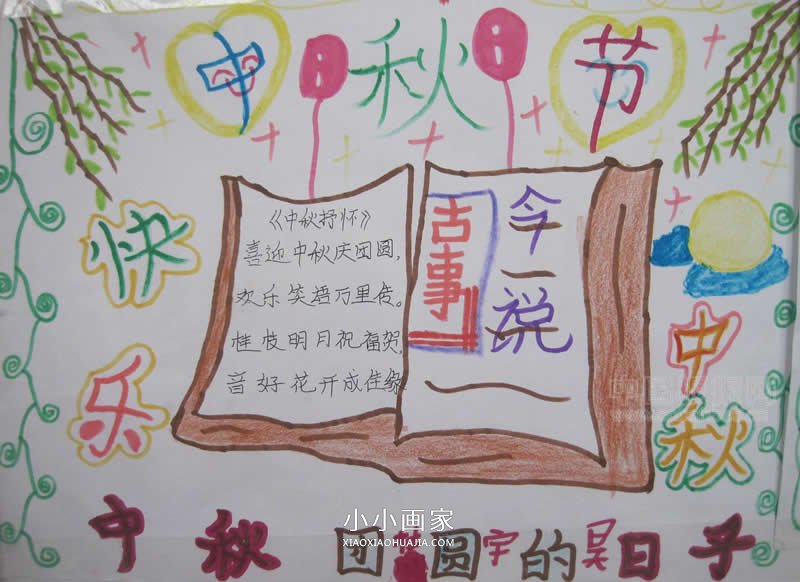 中秋节
快乐
《中秋抒怀》
喜迎中秋庆团圆,
欢乐笑语万里传。
桂枝明月祝福贺,
音好花开成佳缘
古事
今一说
中秋
中秋 团圆宇的昊日子
小小画家
XIAOXIAOHUAJIA.COM